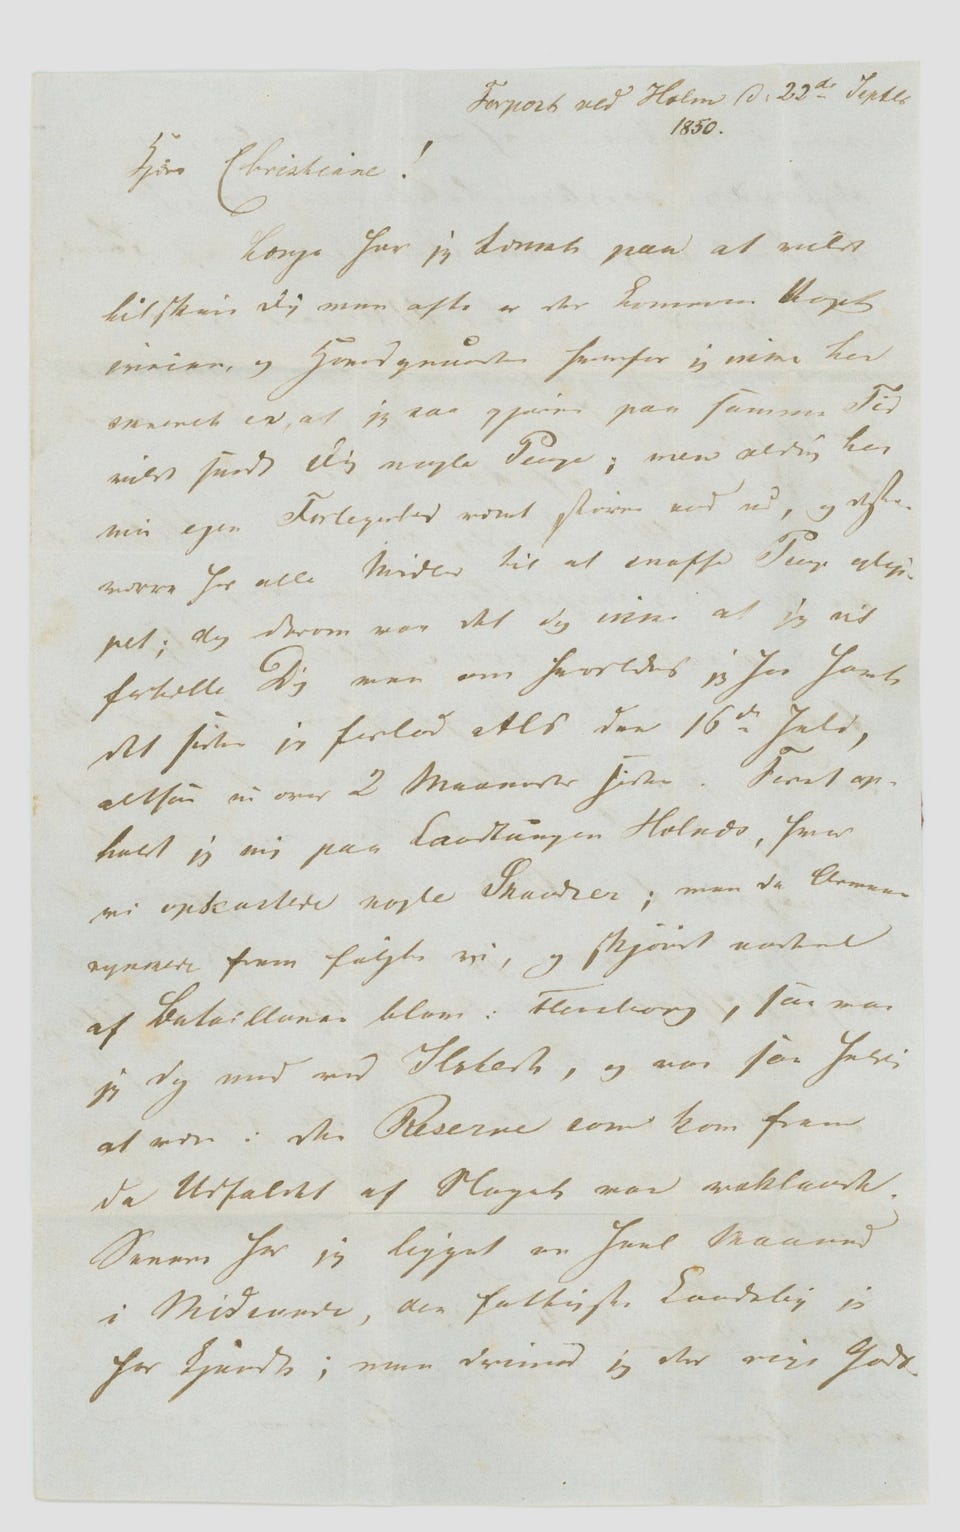 Forpost ved Holm d. 22de Septbr
1850.
Kjære Christiane!
Længe har jeg tænkt paa at ville
tilskrive Dig men ofte er der kommen Noget
imellem, og Hovedgrunden hvorfor jeg ikke har
skrevet er, at jeg saa gjerne paa samme Tid
vilde sendt Dig nogle Penge; men aldrig har
min egen Forlegenhed været større end nu, og desto
værre har alle Midler til at skaffe Penge glip-
pet; dog derom var det jo ikke at jeg vil
fortælle Dig men om hvorledes jeg har havt
det siden jeg forlod Als den 16de Juli,
altsaa nu over 2 Maaneder siden. Først op-
holdt jeg mig paa Landtungen Holnæs, hvor
vi opkastede nogle Skandser; men da Armeen
rykkede frem fulgte vi, og skjøndt
af Bataillonen blev i Flensborg, saa var
jeg dog med ved Idstedt, og var saa heldig
at være i den Reserve som kom frem
da Udfaldet af Slaget var vaklende.
Senere har jeg ligget en heel Maaned
i Midlunde, den fattigste Landsby jeg
har kjendt; men derimod jeg der rige Gods-